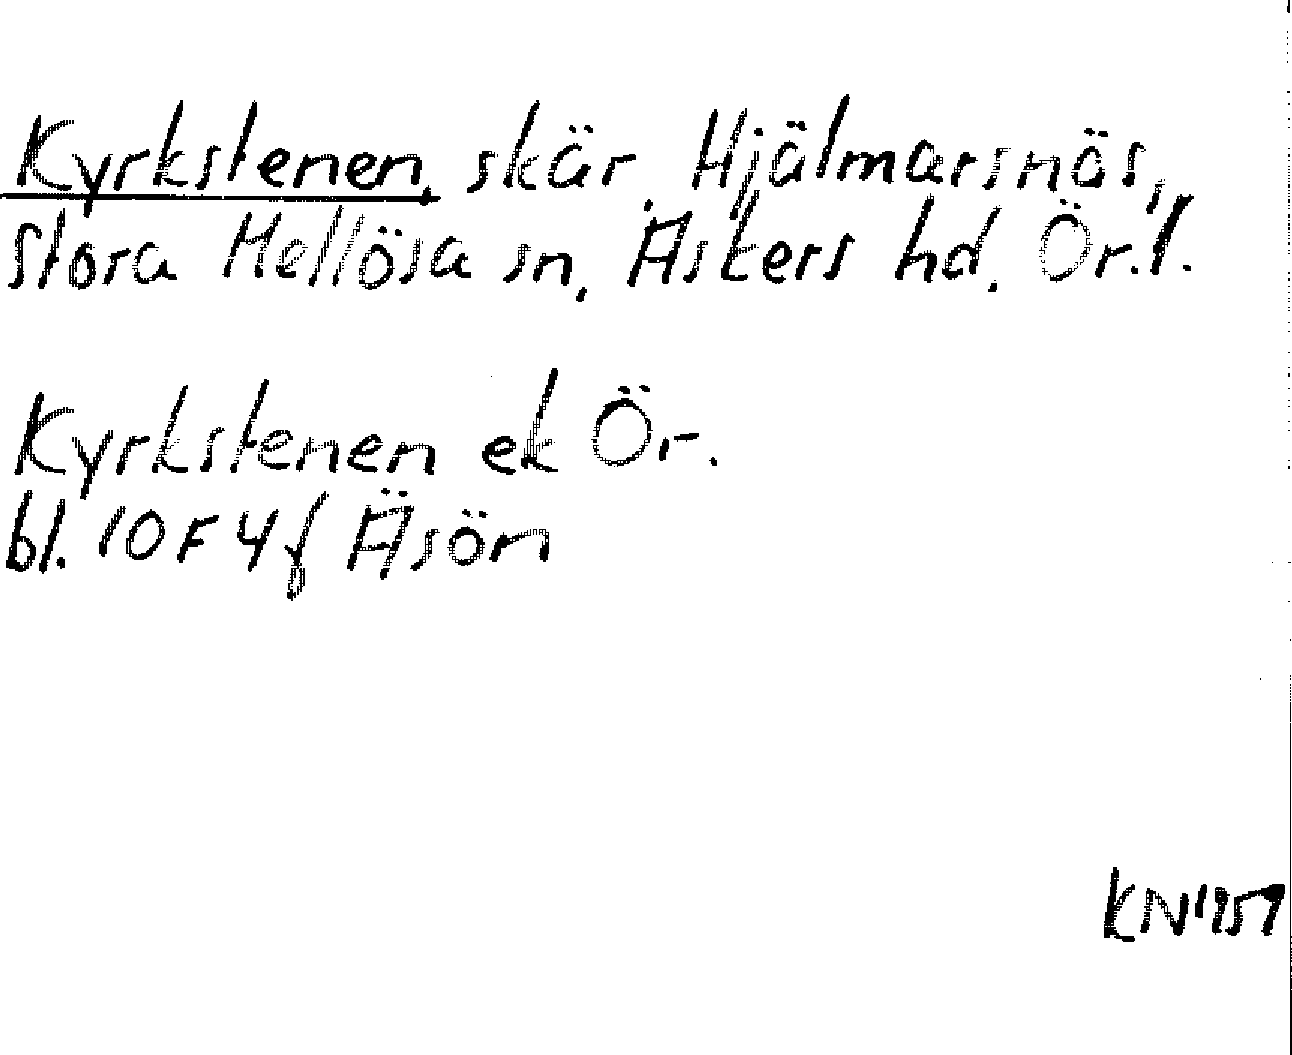 Kyrkstenen, skär, Hjälmarsnäs,
Stora Mellösa sn, Askers hd. Ör.l.
Kyrkstenen ek Ör.
bl. 10F4f Äsön
KN 1957